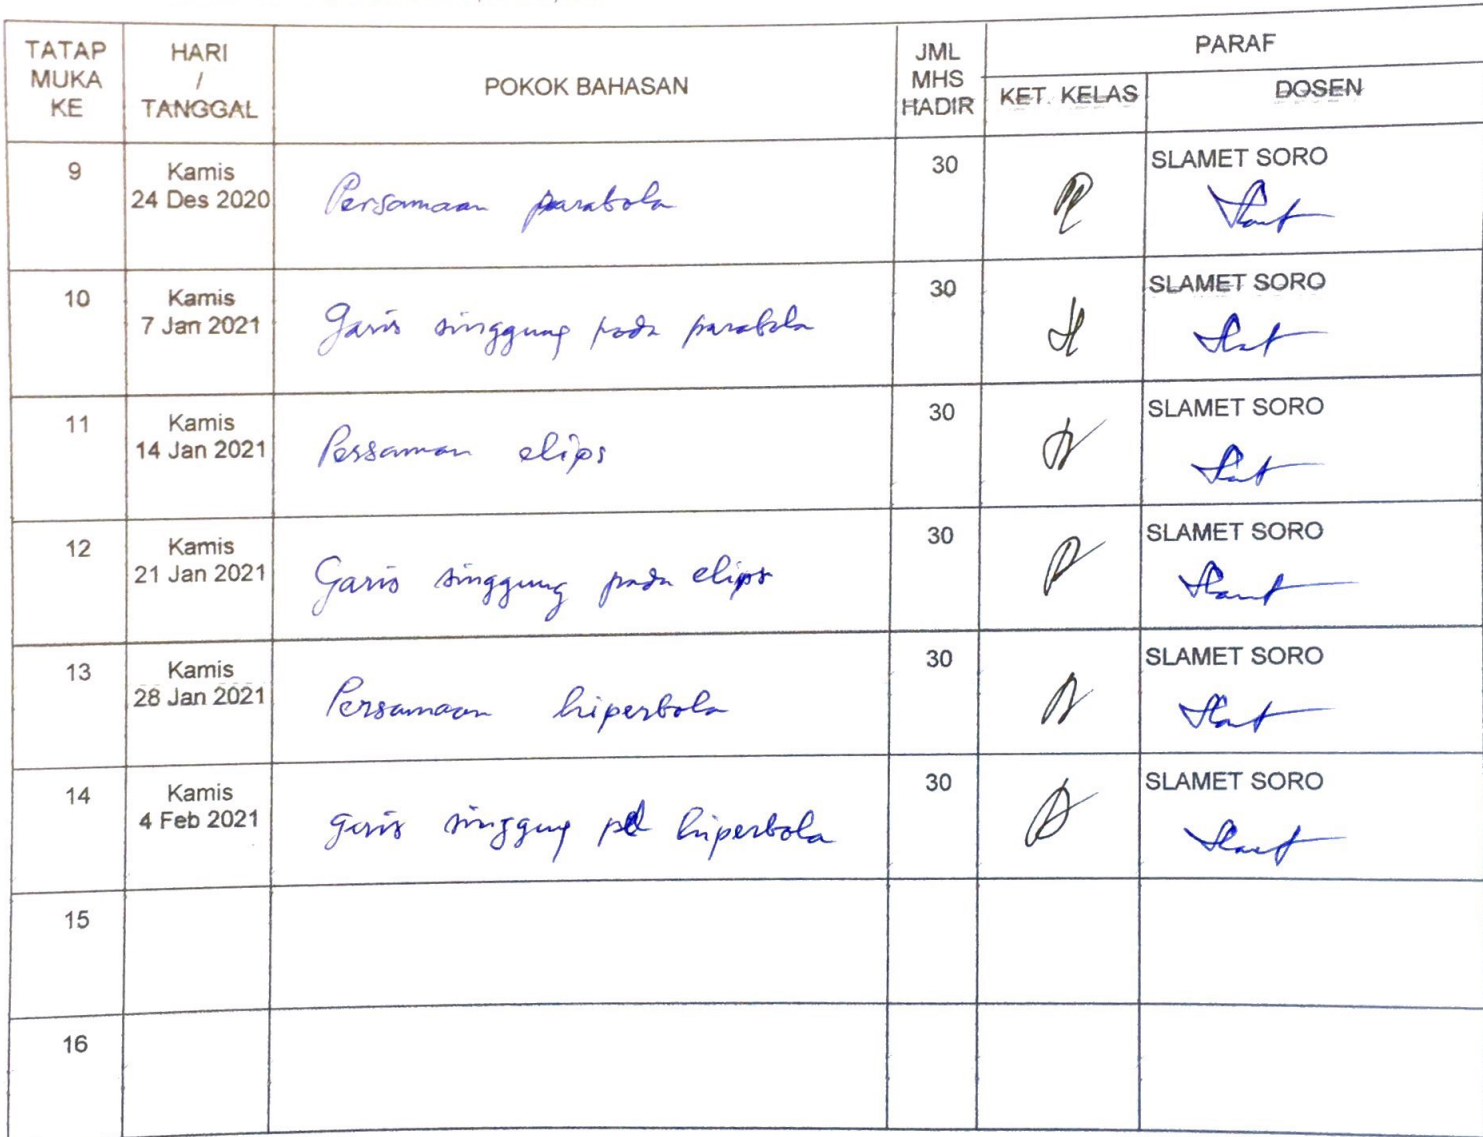 TATAP MUKA KE HARI / TANGGAL POKOK BAHASAN JML MHS HADIR PARAF
KET. KELAS DOSEN
9 Kamis 24 Des 2020 Persamaan parabola 30 SLAMET SORO
10 Kamis 7 Jan 2021 Garis singgung pada parabola 30 SLAMET SORO
11 Kamis 14 Jan 2021 Persaman elips 30 SLAMET SORO
12 Kamis 21 Jan 2021 Garis singgung pada elips 30 SLAMET SORO
13 Kamis 28 Jan 2021 Persamaan hiperbola 30 SLAMET SORO
14 Kamis 4 Feb 2021 garis singgung pd hiperbola 30 SLAMET SORO
15
16